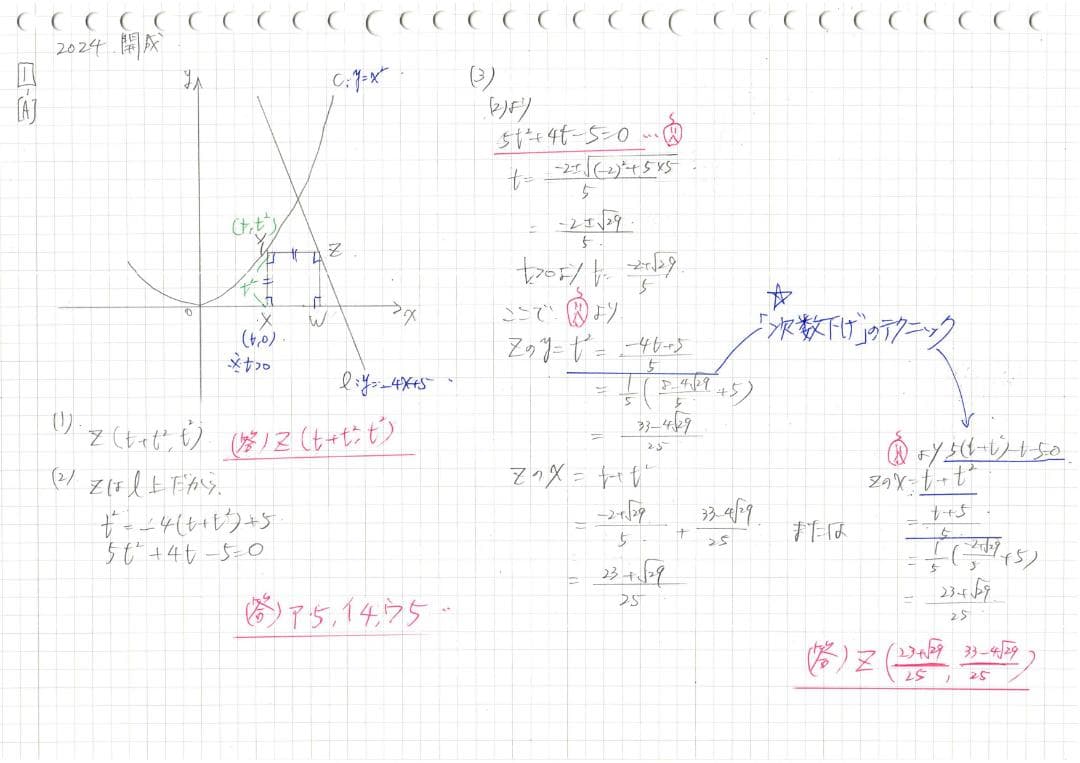 2024 開成
1
[A]
y
C:y=x²
(t,t²)
Y
Z
t²
0
X
W
x
(t,0)
※t>0
l:y=-4x+5
(1)
Z(t+t²,t²)
(答)Z(t+t²,t²)
(2)
Zはl上だから、
t²=-4(t+t²)+5
5t²+4t-5=0
(答)ア5,イ4,ウ5
(3)
(2)より
5t²+4t-5=0 …
t=\frac{-2±√(-2)²+5×5}{5}
=\frac{-2±√29}{5}
t>0より t=\frac{-2+√29}{5}
ここで より
Zのy=t²=\frac{-4t+5}{5}
=\frac{1}{5}(\frac{8-4√29}{5}+5)
=\frac{33-4√29}{25}
Zのx=t+t²
=\frac{-2+√29}{5}+\frac{33-4√29}{25}
=\frac{23+√29}{25}
または
☆
「次数下げ」のテクニック
より5(t+t²)-t-5=0
Zのx=t+t²
=\frac{t+5}{5}
=\frac{1}{5}(\frac{-2+√29}{5}+5)
=\frac{23+√29}{25}
(答)Z(\frac{23+√29}{25},\frac{33-4√29}{25})